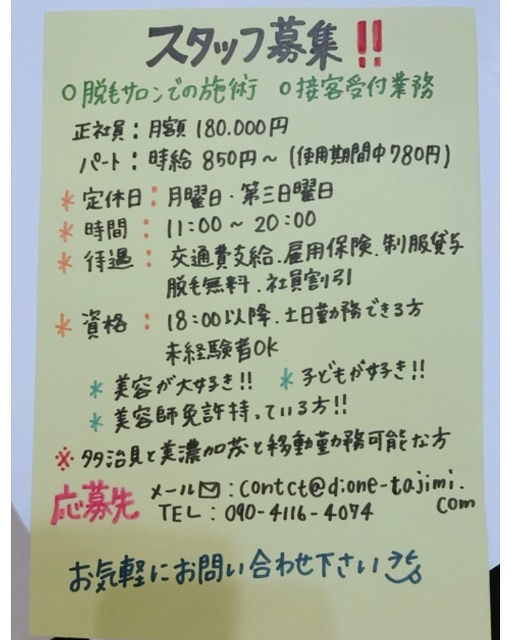 スタッフ募集!!
○脱毛サロンでの施術 ○接客受付業務
正社員：月額 180.000円
パート：時給 850円～(使用期間中780円)
*定休日：月曜日・第三日曜日
*時間：11:00～20:00
*待遇：交通費支給、雇用保険、制服貸与
脱毛無料、社員割引
*資格：18:00以降、土日勤務できる方
未経験者OK
*美容が大好き!! *子どもが好き!!
*美容師免許持っている方!!
※多治見と美濃加茂と移動勤務可能な方
応募先 メール✉：contct@dione-tajimi.
com
TEL：090-4116-4074
お気軽にお問い合わせ下さい